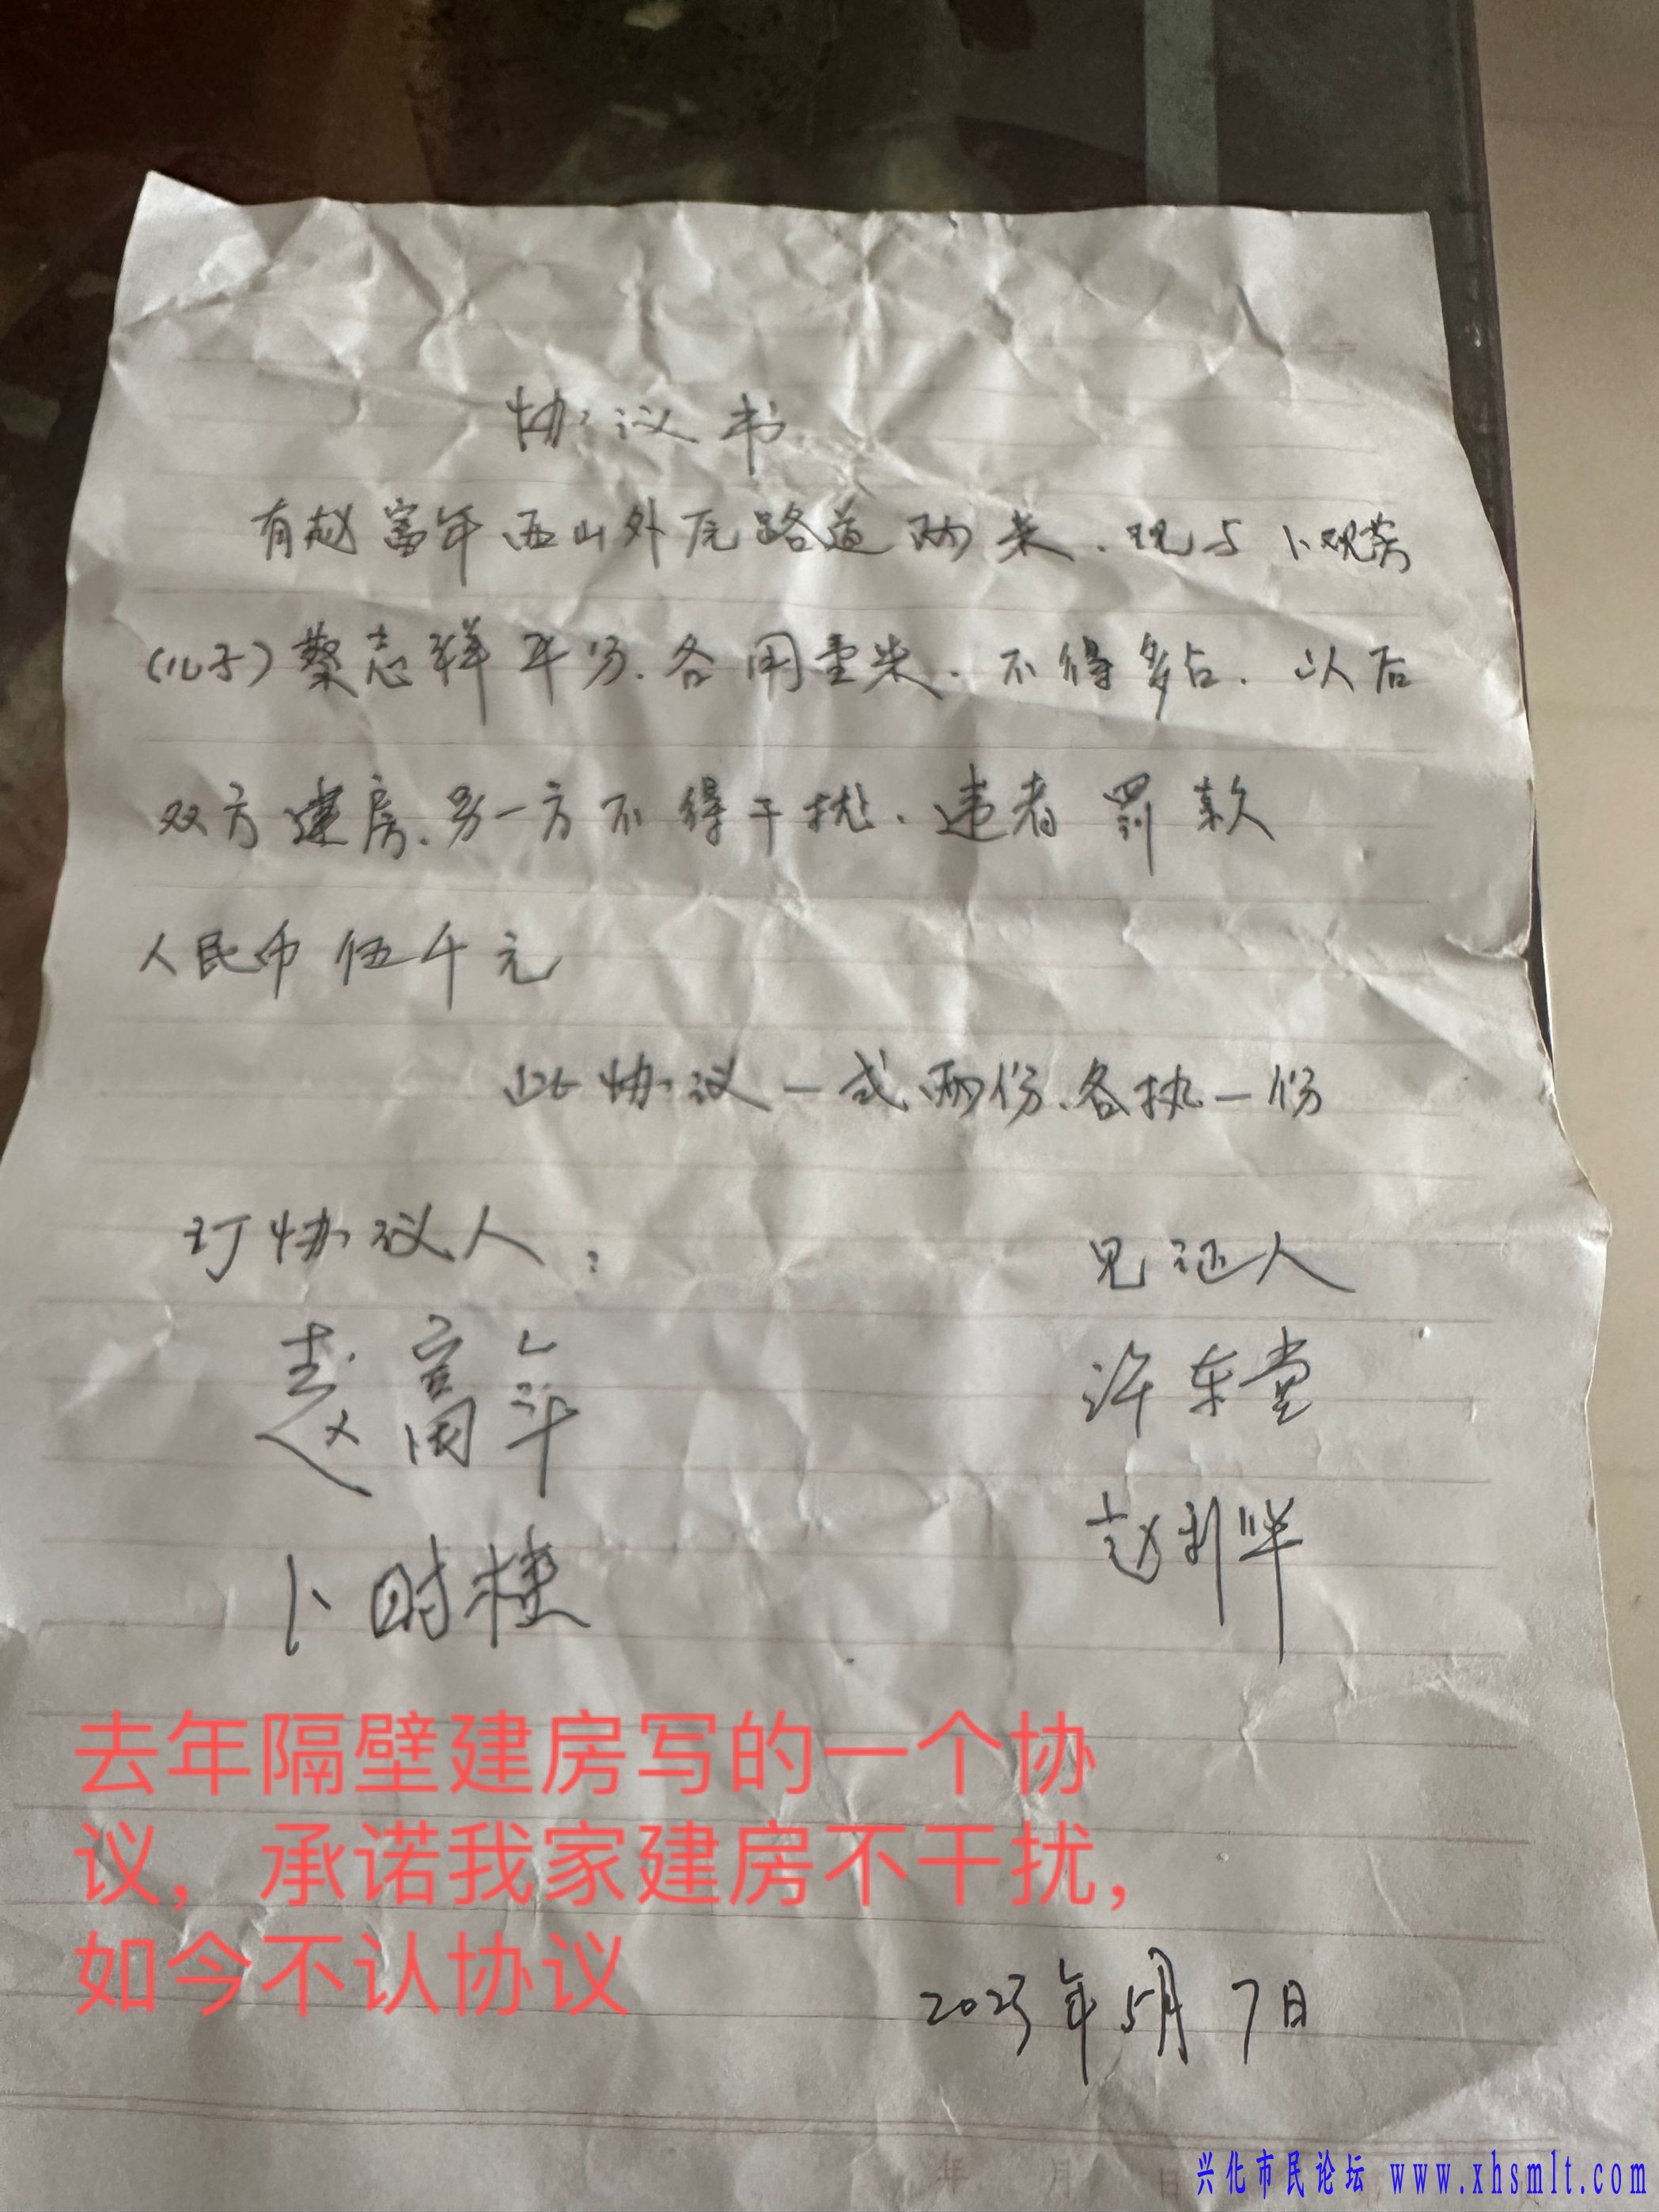 协议书
有赵富年西山外 路道两米.现与卜
(儿子)蔡志祥平分.各用壹米.不得多占.以后
双方建房.另一方不得干扰.违者罚款
人民币伍千元
此协议一式两份.各执一份
订协议人:
见证人
赵富年
许东堂
卜时桂
赵利华
去年隔壁建房写的一个协
议，承诺我家建房不干扰，
如今不认协议
2023年5月7日
年 月 日
兴化市民论坛 www.xhsmlt.com